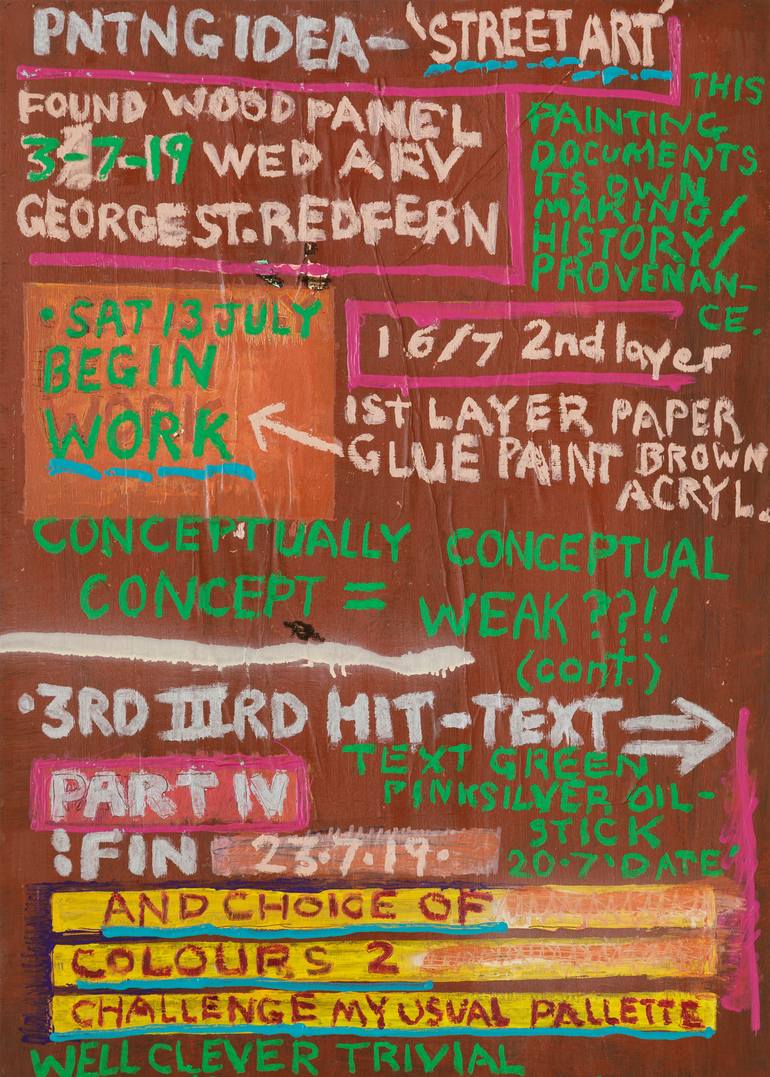 PNTNG IDEA-'STREET ART'
FOUND WOOD PANEL
3-7-19 WED ARV
GEORGE ST. REDFERN
THIS
PAINTING
DOCUMENTS
ITS OWN
MAKING/
HISTORY/
PROVENAN-
CE.
• SAT 13 JULY
BEGIN
WORK
16/7 2nd layer
1ST LAYER PAPER
GLUE PAINT BROWN
ACRYL.
CONCEPTUALLY
CONCEPT =
CONCEPTUAL
WEAK ??!!
(cont.)
•3RD IIIRD HIT-TEXT
TEXT GREEN
PINKSILVER OIL-
STICK
20·7 'DATE'
PART IV
:FIN 23·7·19·
AND CHOICE OF
COLOURS 2
CHALLENGE MY USUAL PALLETTE
WELL CLEVER TRIVIAL